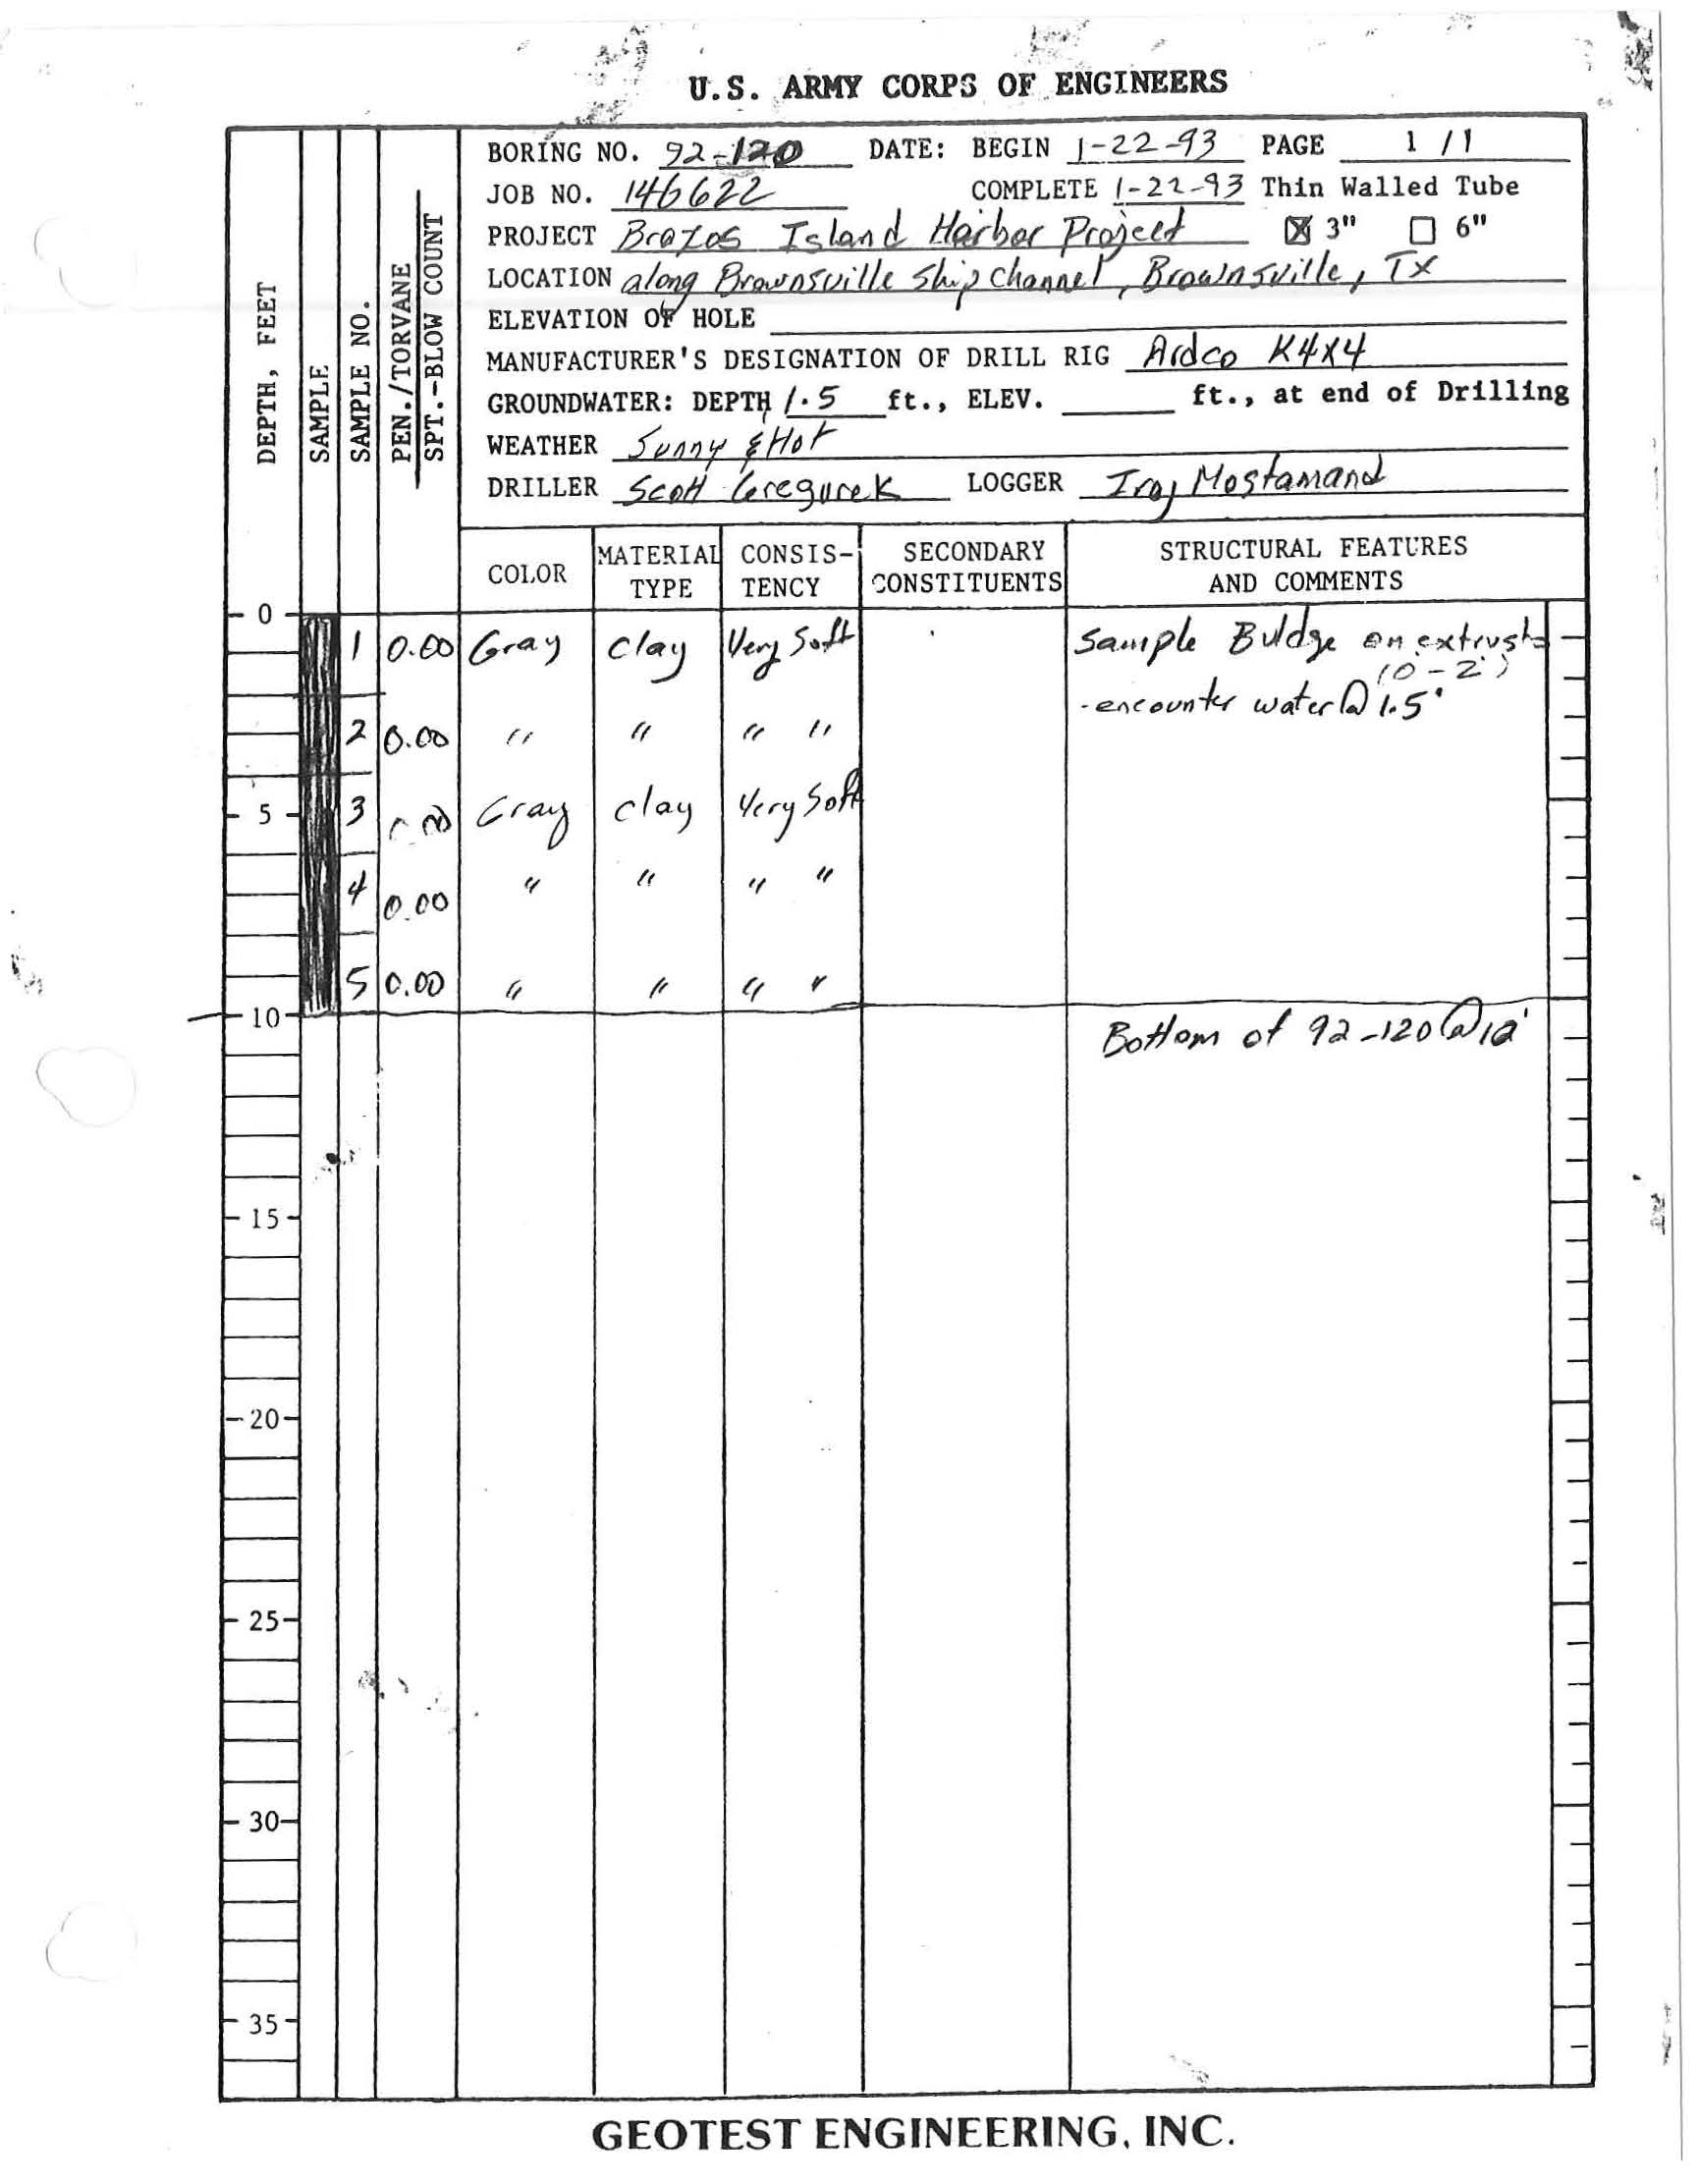 U.S. ARMY CORPS OF ENGINEERS
BORING NO. 92-120 DATE: BEGIN 1-22-93 PAGE 1 / 1
JOB NO. 146622 COMPLETE 1-22-93 Thin Walled Tube
PROJECT Brazos Island Harbor Project ☒ 3" ☐ 6"
LOCATION along Brownsville Ship Channel, Brownsville, Tx
ELEVATION OF HOLE
MANUFACTURER'S DESIGNATION OF DRILL RIG Ardco K4X4
GROUNDWATER: DEPTH 1.5 ft., ELEV. ft., at end of Drilling
WEATHER Sunny & Hot
DRILLER Scott LOGGER Iraj Mostamand
DEPTH, FEET
SAMPLE
SAMPLE NO.
PEN./TORVANE
SPT.-BLOW COUNT
COLOR
MATERIAL TYPE
CONSIS-TENCY
SECONDARY CONSTITUENTS
STRUCTURAL FEATURES AND COMMENTS
0
1 0.00 Gray clay Very Soft Sample Buldge on
(0-2')
-encounter water @ 1.5'
2 0.00 " " " "
5 3 Gray clay Very Soft
4 0.00 " " " "
5 0.00 " " " "
10
Bottom of 92-120 @
15
20
25
30
35
GEOTEST ENGINEERING, INC.